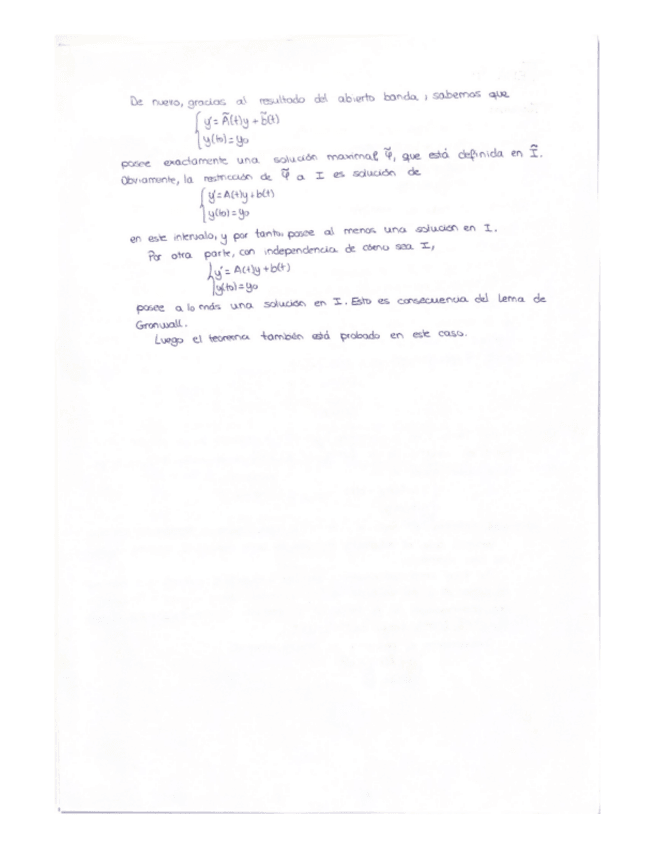 De nuevo, gracias al resultado del abierto banda, sabemos que
{ y' = Ã(t)y + b̃(t)
y(t0) = y0
posee exactamente una solución maximal φ̃, que está definida en Ĩ.
Obviamente, la restricción de φ̃ a I es solución de
{ y' = A(t)y + b(t)
y(t0) = y0
en este intervalo, y por tanto posee al menos una solución en I.
Por otra parte, con independencia de cómo sea I,
{ y' = A(t)y + b(t)
y(t0) = y0
posee a lo más una solución en I. Esto es consecuencia del Lema de
Gronwall.
Luego el teorema también está probado en este caso.